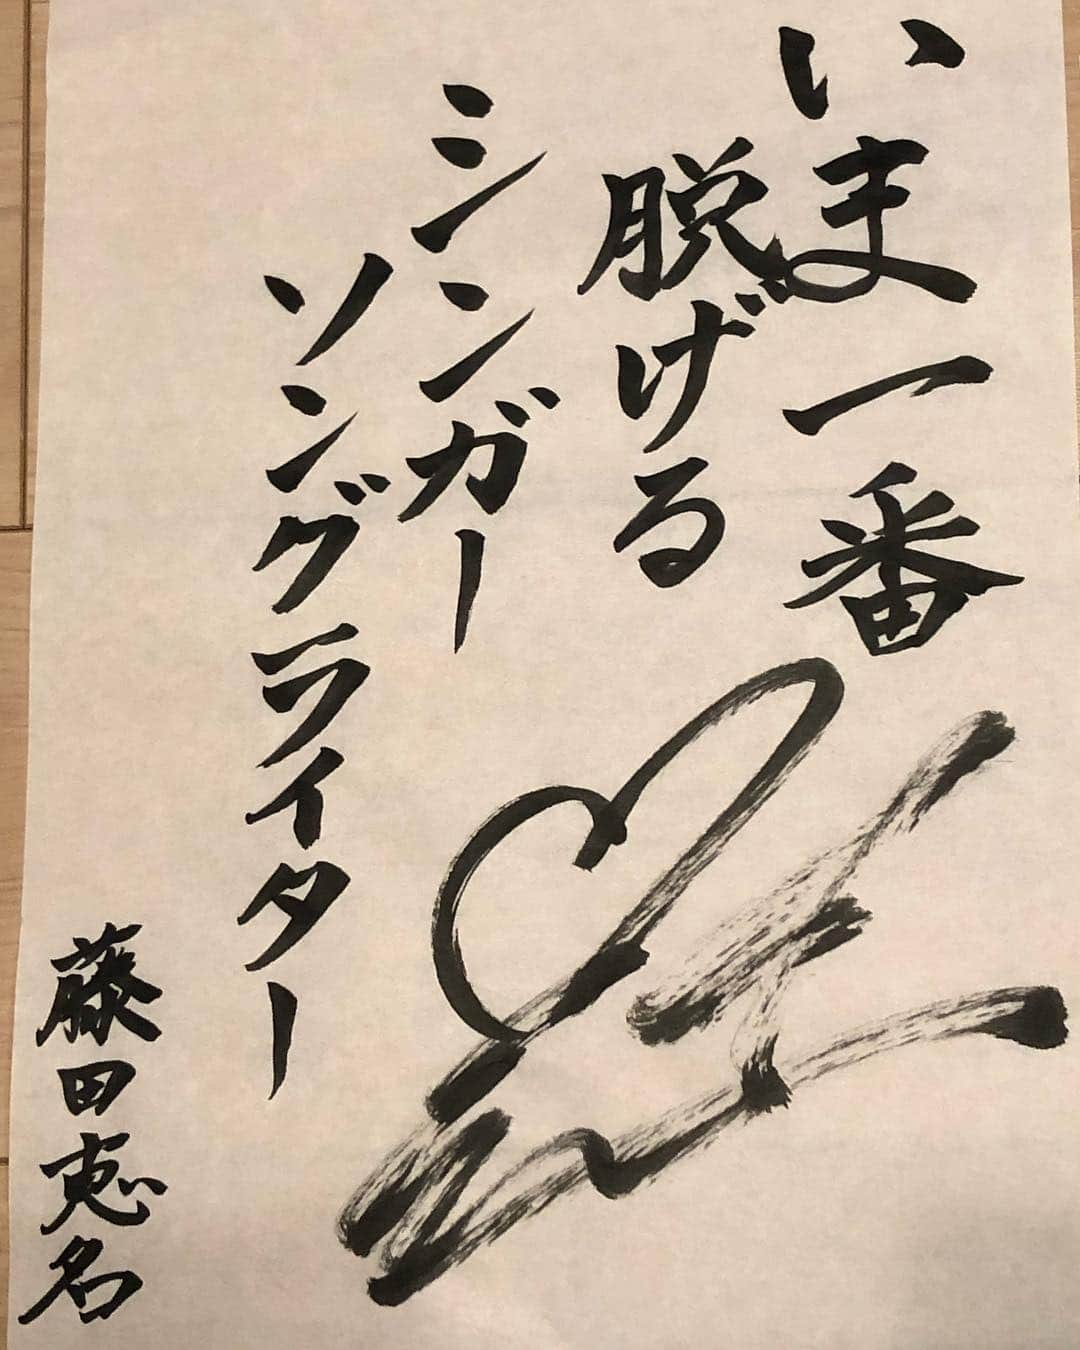 いま一番
脱げる
シンガー
ソングライター
藤田恵名